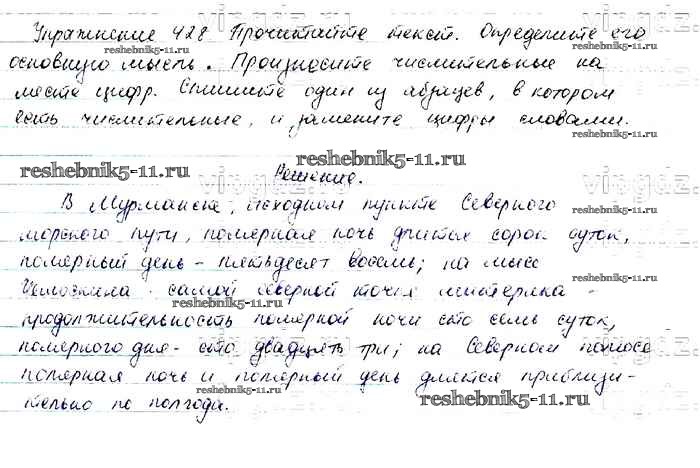 Упражнение 428 Прочитайте текст. Определите его
reshebnik5-11.ru
основную мысль. Произносите числительные на
месте цифр. Спишите один из абзацев, в котором
есть числительные, и замените цифры словами.
reshebnik5-11.ru
reshebnik5-11.ru
Решение.
В Мурманске, исходном пункте Северного
reshebnik5-11.ru
морского пути, полярная ночь длится сорок суток,
полярный день - пятьдесят восемь; на мысе
reshebnik5-11.ru
Челюскина - самой северной точке материка -
reshebnik5-11.ru
продолжительность полярной ночи сто семь суток,
полярного дня - сто двадцать три; на Северном полюсе
полярная ночь и полярный день длятся приблизи-
reshebnik5-11.ru
тельно по полгода.
reshebnik5-11.ru